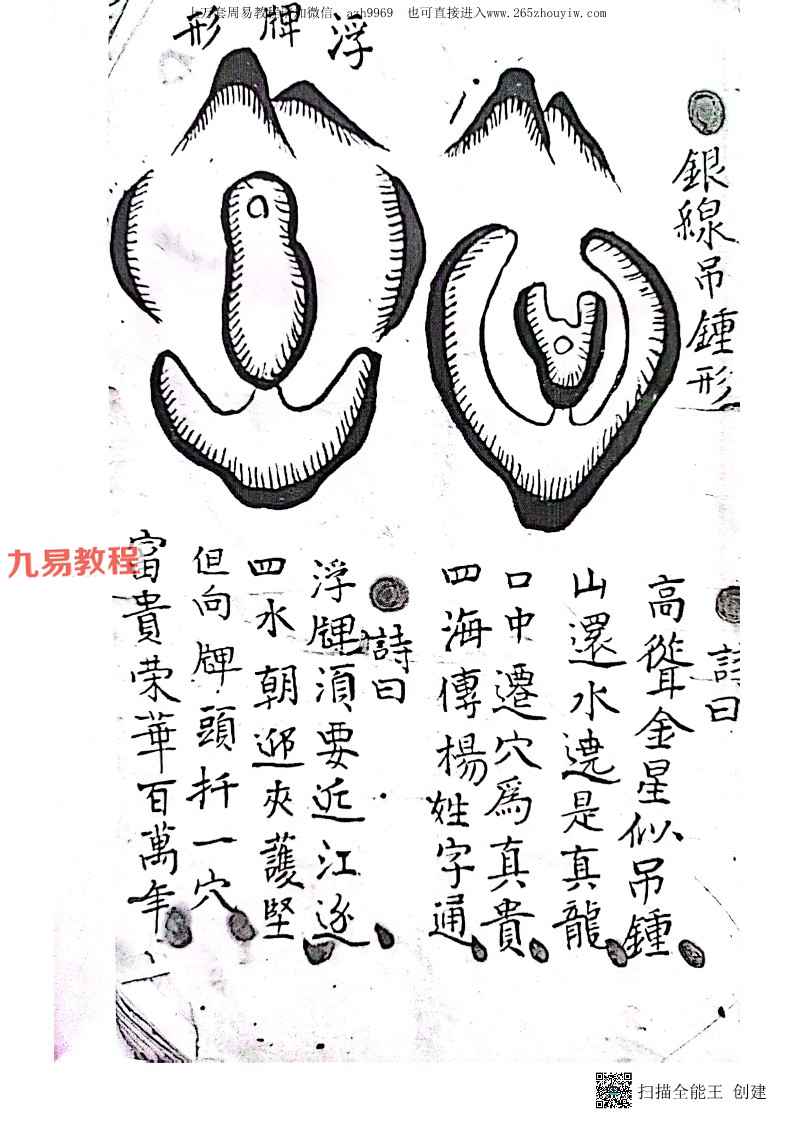 上万套周易教程 加微信 azh9969 也可直接进入www.265zhouyiw.com
銀線吊鍾形
詩曰
高聳金星似吊鍾
山還水遶是真龍
口中遷穴為真貴
四海傳楊姓字通
浮牌形
詩曰
浮牌須要近江
四水朝迎夾護堅
但向牌頭扦一穴
富貴荣華百萬年
九易教程
扫描全能王 创建